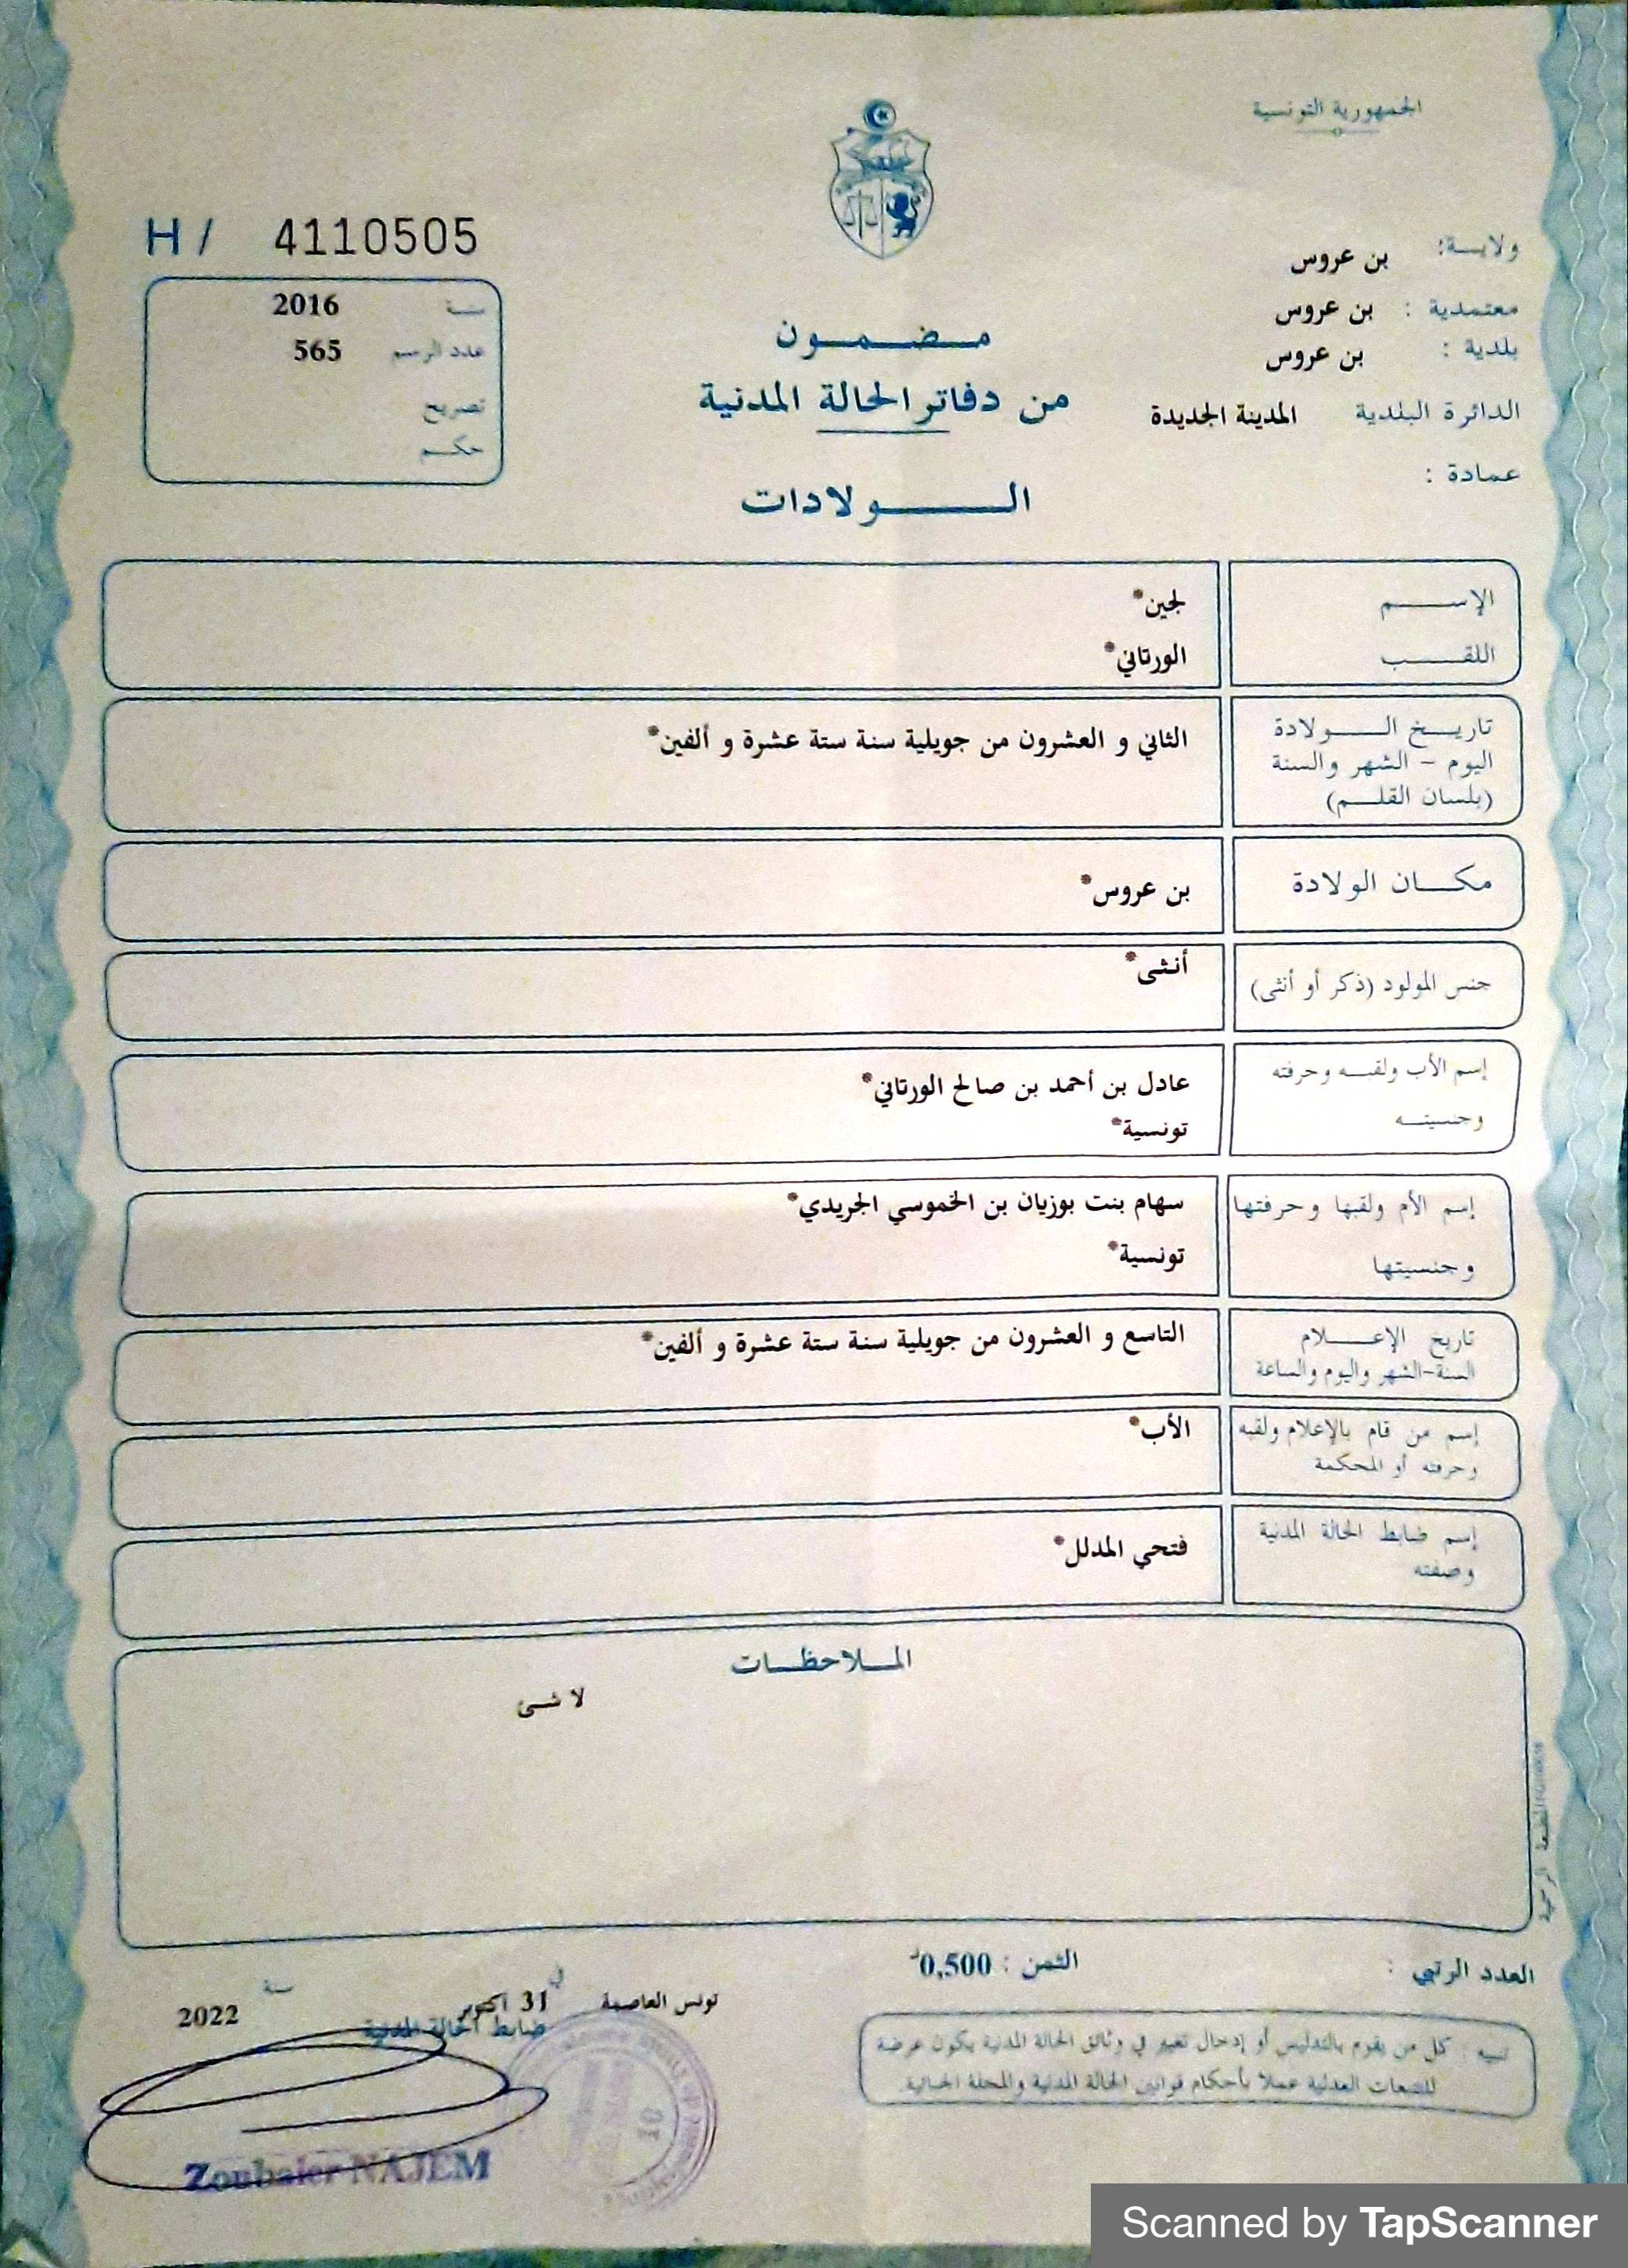 الجمهورية التونسية
ولاية: بن عروس
معتمدية : بن عروس
بلدية : بن عروس
الدائرة البلدية المدينة الجديدة
عمادة :
مضمون
من دفاتر الحالة المدنية
الولادات
H/ 4110505
سنة 2016
عدد الرسم 565
تصريح
حكم
الإسم لجين*
اللقب الورتاني*
تاريخ الولادة
اليوم - الشهر والسنة
(بلسان القلم)
الثاني و العشرون من جويلية سنة ستة عشرة و ألفين*
مكان الولادة بن عروس*
جنس المولود (ذكر أو أنثى) أنثى*
إسم الأب ولقبه وحرفته
وجنسيته
عادل بن أحمد بن صالح الورتاني*
تونسية*
إسم الأم ولقبها وحرفتها
وجنسيتها
سهام بنت بوزيان بن الخموسي الجريدي*
تونسية*
تاريخ الإعلام
السنة-الشهر واليوم والساعة
التاسع و العشرون من جويلية سنة ستة عشرة و ألفين*
إسم من قام بالإعلام ولقبه
وحرفته أو المحكمة
الأب*
إسم ضابط الحالة المدنية
وصفته
فتحي المدلل*
الملاحظات
لا شئ
المطبعة الرسمية
العدد الرتبي :
الثمن : 0,500د
تنبيه : كل من يقوم بالتدليس أو إدخال تغيير في وثائق الحالة المدنية يكون عرضة
للتتبعات العدلية عملا بأحكام قوانين الحالة المدنية والمجلة الجنائية.
تونس العاصمة في 31 اكتوبر سنة 2022
ضابط الحالة المدنية
Zoubaier NAJEM
Scanned by TapScanner